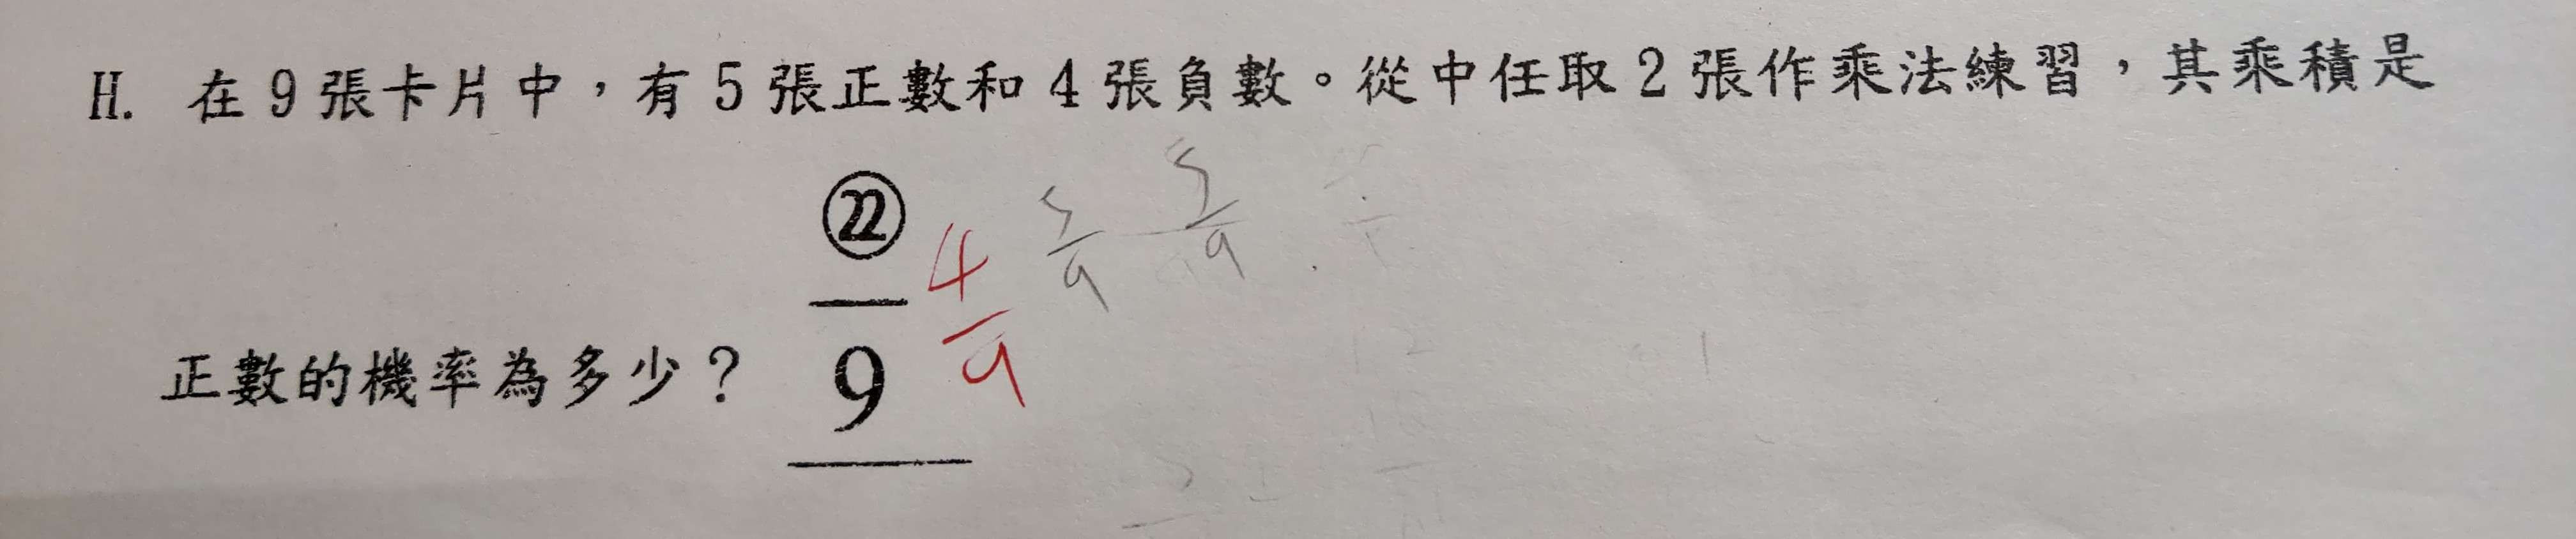 H. 在9張卡片中，有5張正數和4張負數。從中任取2張作乘法練習，其乘積是
正數的機率為多少？ ㉒/9 4/9 5/9 5/9